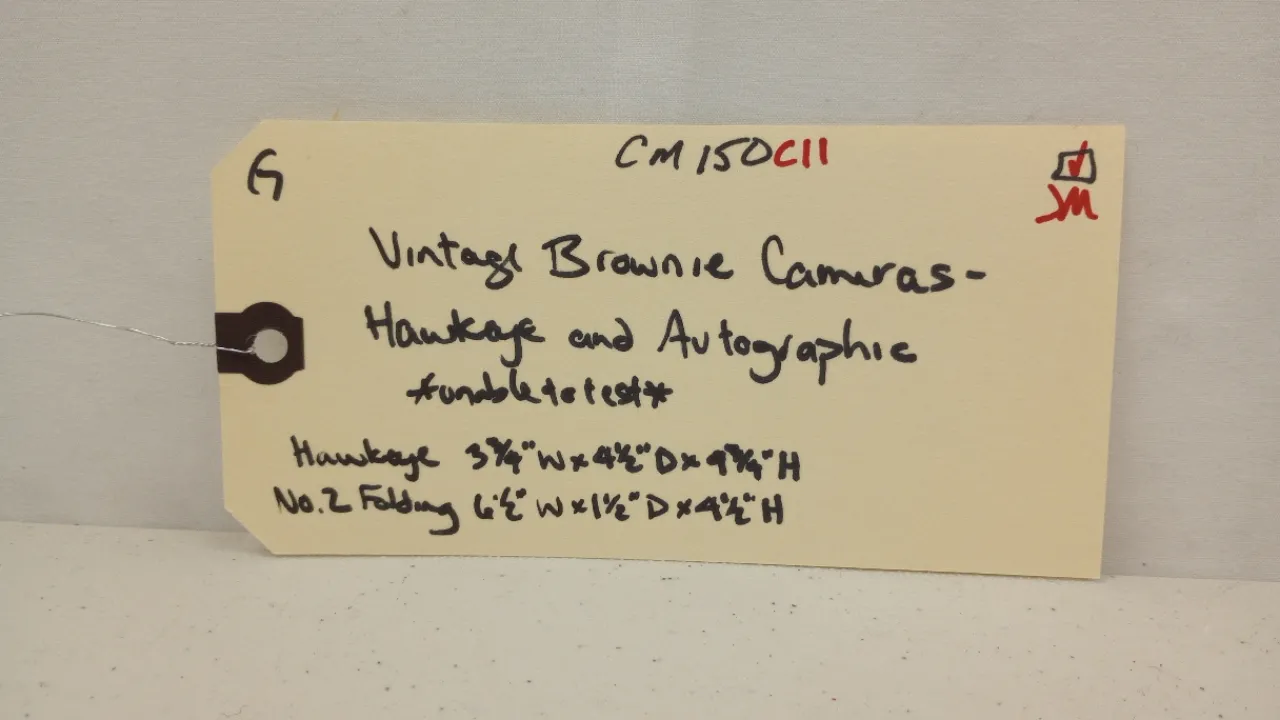 G
CM150C11
JM
Vintage Brownie Cameras-
Hawkeye and Autographic
*unable to test*
Hawkeye 3 3/4" W x 4 1/2" D x 4 3/4" H
No.2 Folding 6 1/2" W x 1 1/2" D x 4 1/2" H